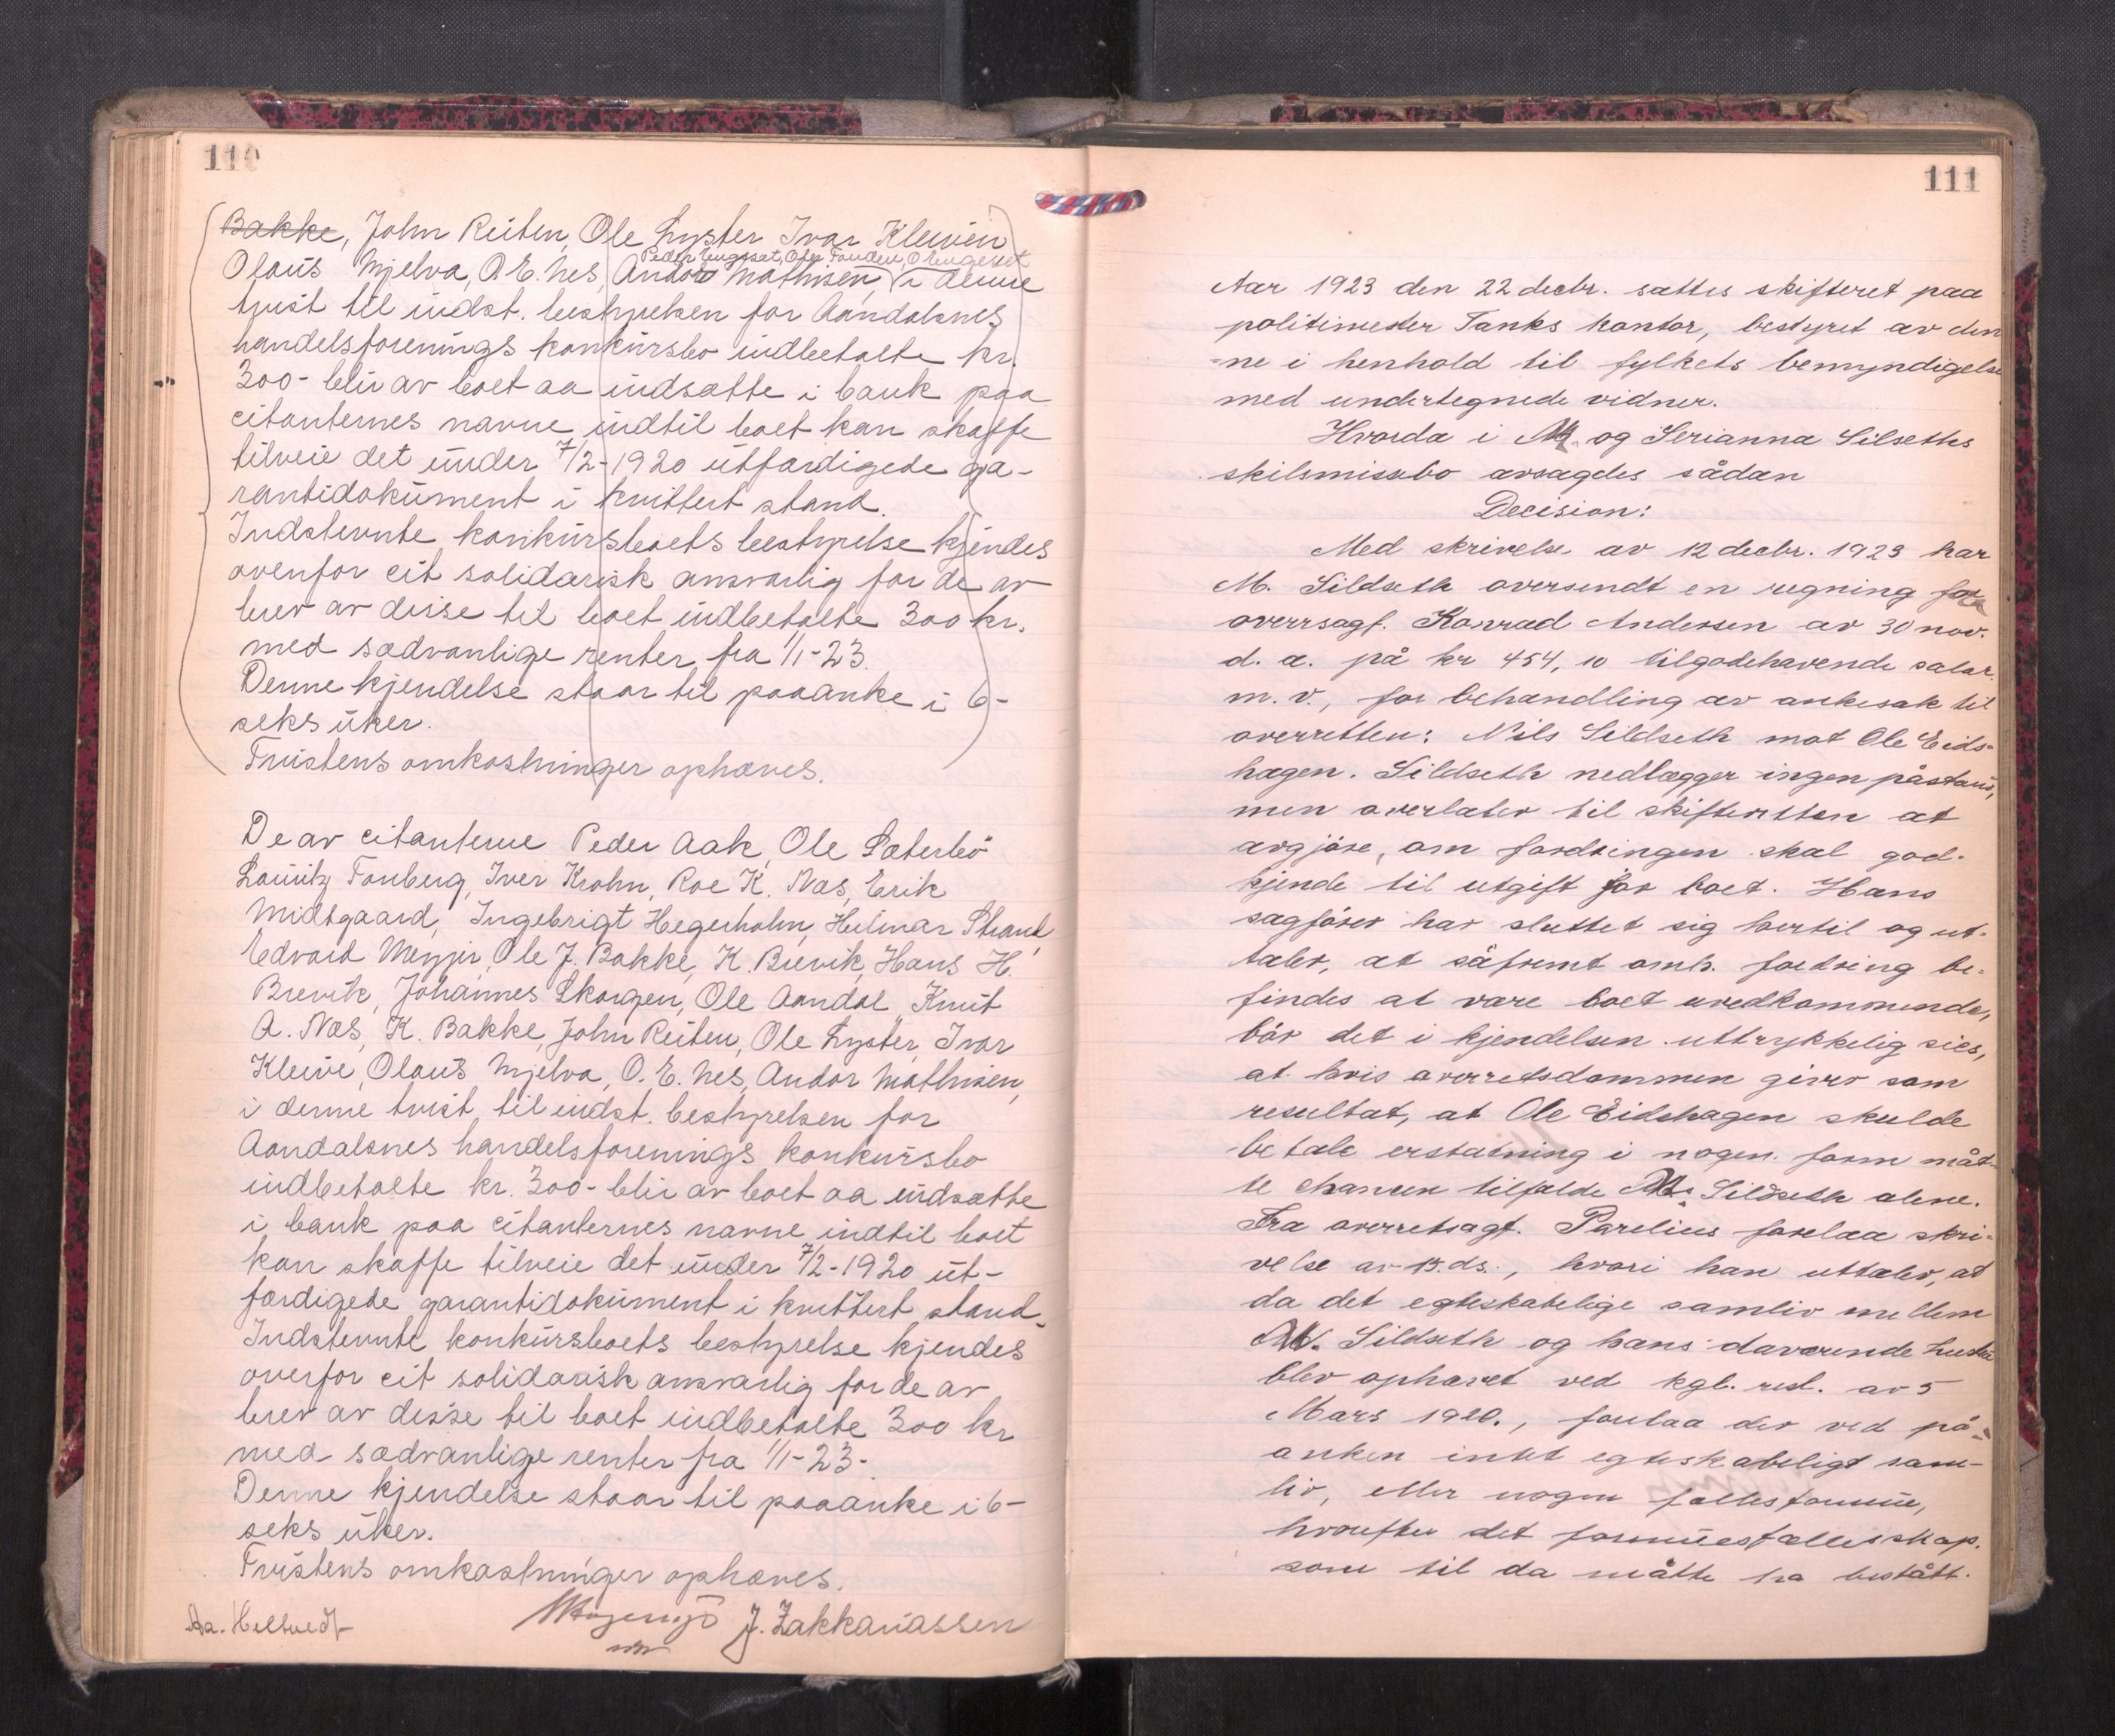 110
Bakke, John Reiten, Ole Lyster Ivar Kleiven
Peder Engeset, Ole Tonden, O Engeset
Olaus Mjelva, O.E. Nes, Andor Mathisen, i denne
tvist til indst. bestyrelsen for Aandalsnes
handelsforenings konkursbo indbetalte kr.
300- blir av boet aa indsætte i bank paa
citanternes navne indtil boet kan skaffe
tilveie det under 7/2-1920 utfærdigede ga-
rantidokument i kvittert stand.
Indstevnte konkursboets bestyrelse kjendes
ovenfor cit solidarisk ansvarlig for de av
hver av disse til boet indbetalte 300 kr.
med sædvanlige renter fra 1/1-23.
Denne kjendelse staar til paaanke i 6-
seks uker.
Tvistens omkostninger ophæves.
De av citanterne Peder Aak, Ole Sæterbö
Lauritz Tonberg, Iver Krohn, Roe K. Næs, Erik
Midtgaard, Ingebrigt Hegerholm, Hilmar Strand,
Edvard Meyjer, Ole J. Bakke, K. Brevik, Hans H.
Brevik, Johannes Skorgen, Ole Aandal, Knut
A. Næs, K. Bakke, John Reiten, Ole Lyster, Ivar
Kleive, Olaus Mjelva, O. E. Nes, Andor Mathisen,
i denne tvist til indst. bestyrelsen for
Aandalsnes handelsforenings konkursbo
indbetalte kr. 300- blir av boet aa indsætte
i bank paa citanternes navne indtil boet
kan skaffe tilveie det under 7/2-1920 ut-
færdigede garantidokument i kvittert stand.
Indstevnte konkursboets bestyrelse kjendes
overfor cit solidarisk ansvarlig for de av
hver av disse til boet indbetalte 300 kr
med sædvanlige renter fra 1/1-23-.
Denne kjendelse staar til paaanke i 6-
seks uker.
Tvistens omkostninger ophæves.
J. Zakkariassen
Aa. Hellvedt
111
Aar 1923 den 22 decbr. sattes skifteret paa
politimester Tanks kontor, bestyret av den
=ne i henhold til fylkets bemyndigelse
med undertegnede vidner.
Hvorda i M. og Serianna Silseths
skilsmissebo avsagdes sådan
Decision:
Med skrivelse av 12 decbr. 1923 har
M. Sildseth oversendt en regning fra
overrsagf. Konrad Andersen av 30 nov.
d. a. på kr 454, 10 tilgodehavende salær
m. v., for behandling av ankesak til
overretten: Nils Sildseth mot Ole Eids-
hagen. Sildseth nedlægger ingen påstand,
men overlater til skifteretten at
avgjöre, om fordringen skal god-
kjende til utgift for boet. Hans
sagförer har sluttet sig hertil og ut-
taler, at såfremt omh. fordring be-
findes at være boet uvedkommende,
bör det i kjendelsen uttrykkelig sies,
at hvis overretsdommen giver som
resultat, at Ole Eidshagen skulde
betale erstatning i nogen form måt-
te chancen tilfalde M. Sildseth alene.
Fra overretsagf. Parelius forelaa skri-
velse av 19. ds., hvori han uttaler, at
da det egteskabelige samliv mellem
M. Sildseth og hans daværende hustru
blev ophævet ved kgl. resl. av 5
Mars 1920., forelaa der ved på-
anken intet egteskabeligt sam-
liv, eller nogen fællesformue,
hvorefter det formuesfællesskap.
som til da måtte ha bestått.